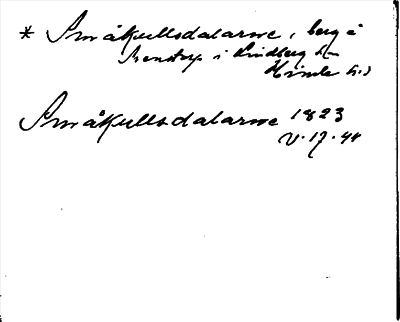 * Småkullsdalarne, berg å
Svenstorp i Lindberg sn
Himle hd
Småkullsdalarne 1823
V. 17. 44